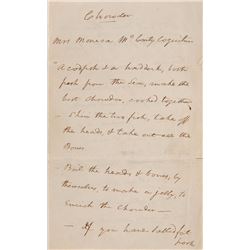 Chowder
Mrs Monica McCarty
"A codfish & a haddock, both
fresh from the Sea, make the
best chowder, cooked together
Skin the two fish, take off
the heads, & take out all the
Bones
Boil the heads & bones, by
themselves, to make a jelly, to
Enrich the Chowder —
— If you have salted fat
pork